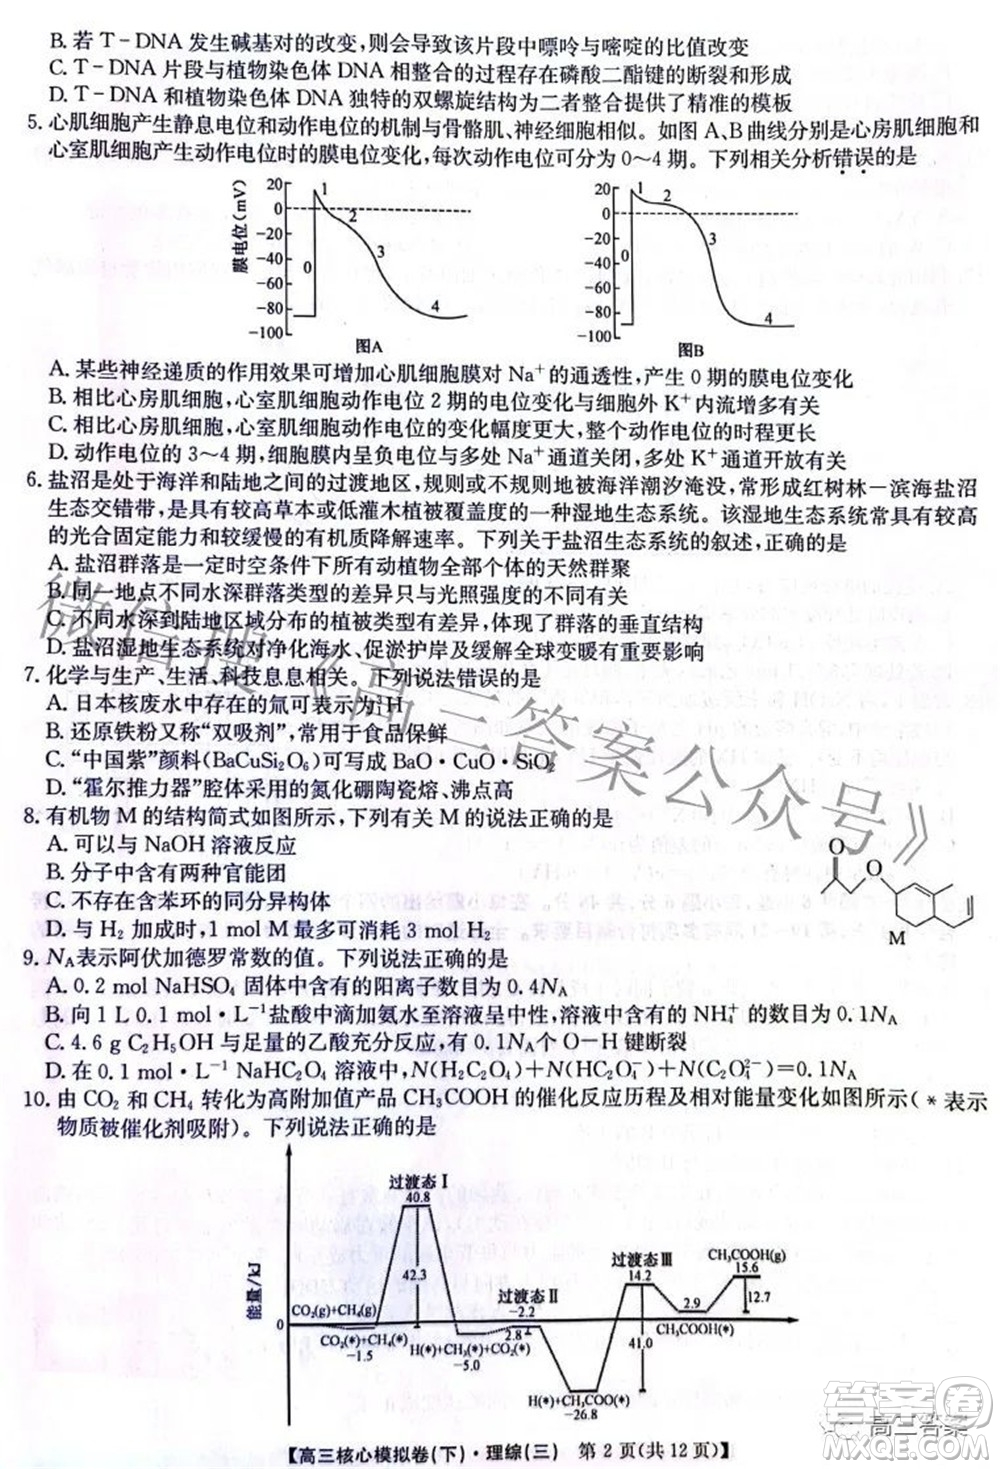 B. 若 T-DNA 发生碱基对的改变,则会导致该片段中嘌呤与嘧啶的比值改变
C. T-DNA 片段与植物染色体 DNA 相整合的过程存在磷酸二酯键的断裂和形成
D. T-DNA 和植物染色体 DNA 独特的双螺旋结构为二者整合提供了精准的模板
5. 心肌细胞产生静息电位和动作电位的机制与骨骼肌、神经细胞相似。如图 A、B 曲线分别是心房肌细胞和
心室肌细胞产生动作电位时的膜电位变化,每次动作电位可分为 0~4 期。下列相关分析错误的是
膜电位(mV)
20
0
-20
-40
-60
-80
-100
0 1 2 3 4
图A
20
0
-20
-40
-60
-80
-100
0 1 2 3 4
图B
A. 某些神经递质的作用效果可增加心肌细胞膜对 Na⁺ 的通透性,产生 0 期的膜电位变化
B. 相比心房肌细胞,心室肌细胞动作电位 2 期的电位变化与细胞外 K⁺ 内流增多有关
C. 相比心房肌细胞,心室肌细胞动作电位的变化幅度更大,整个动作电位的时程更长
D. 动作电位的 3~4 期,细胞膜内呈负电位与多处 Na⁺ 通道关闭,多处 K⁺ 通道开放有关
6. 盐沼是处于海洋和陆地之间的过渡地区,规则或不规则被海洋潮汐淹没,常形成红树林-滨海盐沼
生态交错带,是具有较高草本或低灌木植被覆盖度的一种湿地生态系统。该湿地生态系统常具有较高
的光合固定能力和较缓慢的有机质降解速率。下列关于盐沼生态系统的叙述,正确的是
A. 盐沼群落是一定时空条件下所有动植物全部种群的天然群聚
B. 同一地点不同水深群落类型的差异只与光照强度的不同有关
C. 不同水深到陆地区域分布的植被类型有差异,体现了群落的垂直结构
D. 盐沼湿地生态系统对净化海水、促淤护岸及缓解全球变暖有重要影响
7. 化学与生产、生活、科技息息相关。下列说法错误的是
A. 日本核废水中存在的氚可表示为 ³₁H
B. 还原铁粉又称“双吸剂”,常用于食品保鲜
C. “中国紫”颜料(BaCuSi₂O₆)可写成 BaO·CuO·SiO₂
D. “霍尔推力器”腔体采用的氮化硼陶瓷熔、沸点高
8. 有机物 M 的结构简式如图所示,下列有关 M 的说法正确的是
A. 可以与 NaOH 溶液反应
B. 分子中含有两种官能团
C. 不存在含苯环的同分异构体
D. 与 H₂ 加成时,1 mol M 最多可消耗 3 mol H₂
O
O
M
9. Nₐ表示阿伏加德罗常数的值。下列说法正确的是
A. 0.2 mol NaHSO₄ 固体中含有的阳离子数目为 0.4Nₐ
B. 向 1 L 0.1 mol·L⁻¹ 盐酸中滴加氨水至溶液呈中性,溶液中含有的 NH₄⁺ 的数目为 0.1Nₐ
C. 4.6 g C₂H₅OH 与足量的乙酸充分反应,有 0.1Nₐ 个 O—H 键断裂
D. 在 0.1 mol·L⁻¹ NaHC₂O₄ 溶液中,N(H₂C₂O₄)+N(HC₂O₄⁻)+N(C₂O₄²⁻)=0.1Nₐ
10. 由 CO₂ 和 CH₄ 转化为高附加值产品 CH₃COOH 的催化反应历程及相对能量变化如图所示(*表示
物质被催化剂吸附)。下列说法正确的是
能量/kJ
0
CO₂(g)+CH₄(g)
CO₂(*)+CH₄(*)
-1.5
过渡态Ⅰ
40.8
42.3
H(*)+CH₃(*)+CO₂(*)
-5.0
过渡态Ⅱ
-2.2
2.8
H(*)+CH₃COO(*)
-26.8
过渡态Ⅲ
14.2
41.0
2.9
CH₃COOH(*)
CH₃COOH(g)
15.6
12.7
【高三核心模拟卷(下)·理综(三) 第 2 页(共 12 页)】
微信搜《高三答案公众号》
答案圈
高三答案